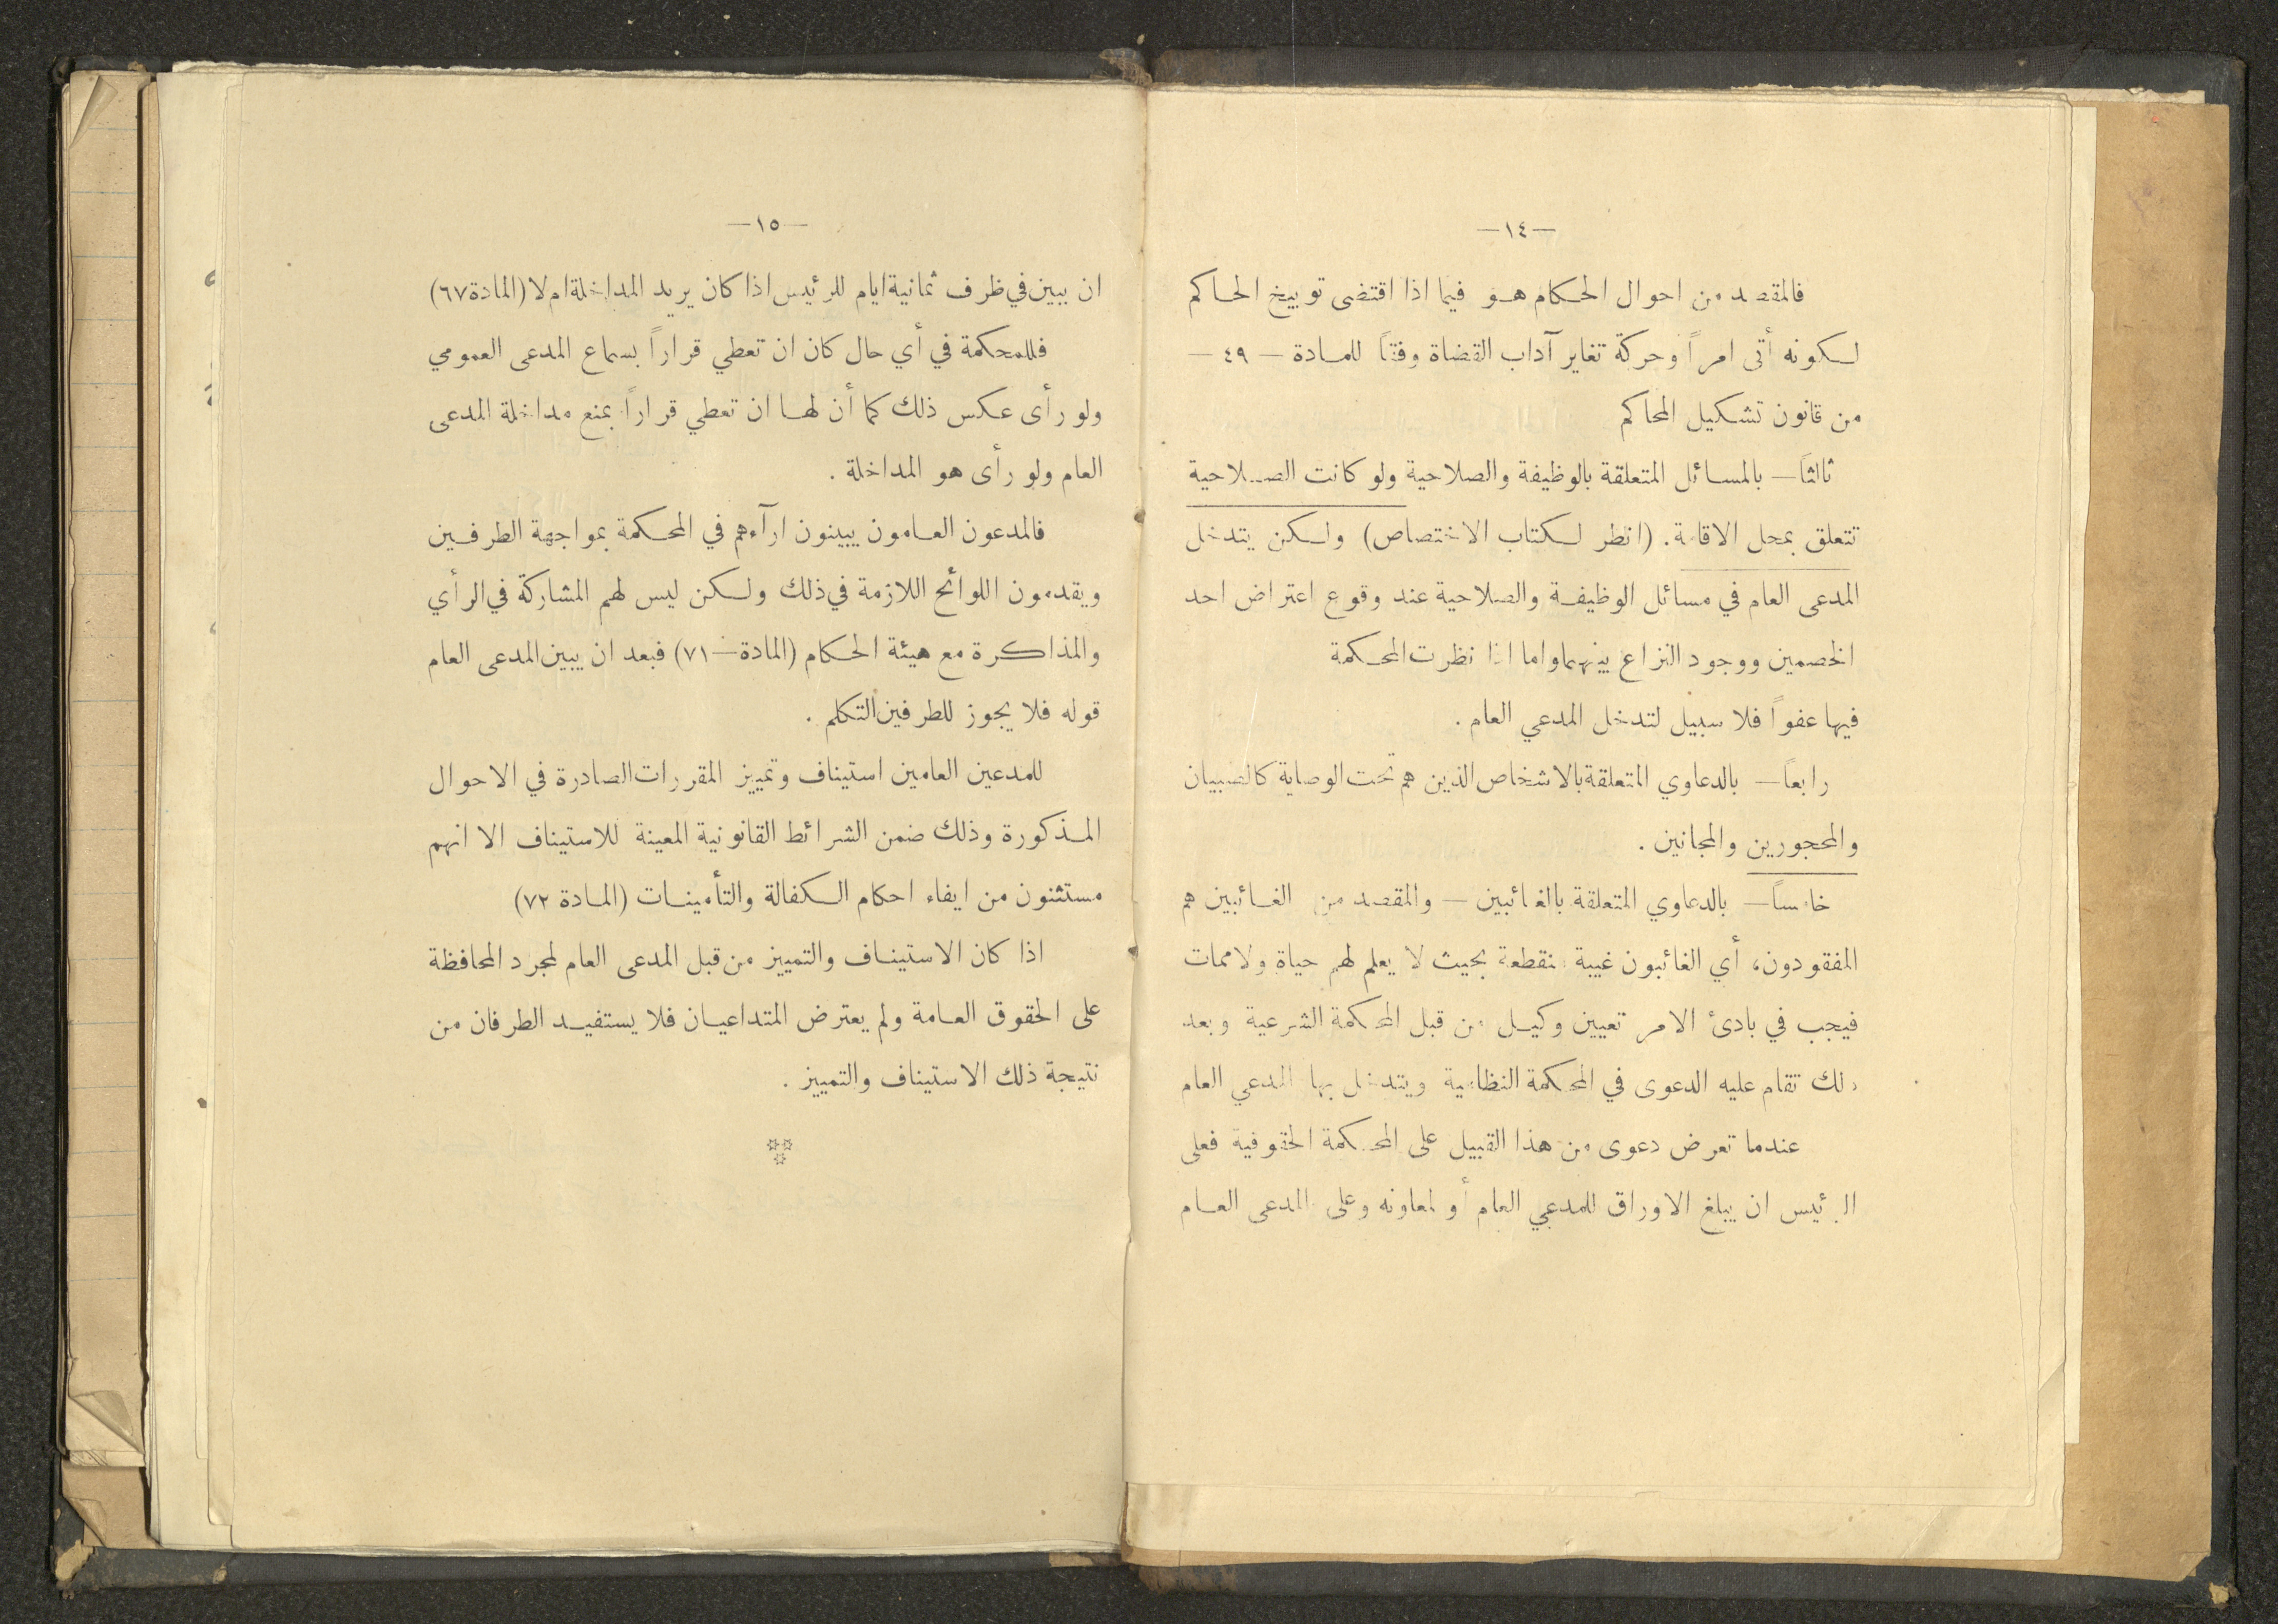 —١٤—
فالمقصد من احوال الحكام هو فيما اذا اقتضى توبيخ الحاكم
لكونه أتى امراً وحركة تغاير آداب القضاة وفقاً للمادة — ٤٩ —
من قانون تشكيل المحاكم
ثالثاً — بالمسائل المتعلقة بالوظيفة والصلاحية ولو كانت الصلاحية
تتعلق بمحل الاقامة. (انظر لكتاب الاختصاص) ولكن يتدخل
المدعى العام في مسائل الوظيفة والصلاحية عند وقوع اعتراض احد
الخصمين ووجود النزاع بينهما واما اذا نظرت المحكمة
فيها عفواً فلا سبيل لتدخل المدعي العام .
رابعاً — بالدعاوي المتعلقة بالاشخاص الذين هم تحت الوصاية كالصبيان
والمحجورين والمجانين .
خامساً — بالدعاوي المتعلقة بالغائبين — والمقصد من الغائبين هم
المفقودون، أي الغائبون غيبة منقطعة بحيث لا يعلم لهم حياة ولا ممات
فيجب في بادئ الامر تعيين وكيل من قبل المحكمة الشرعية وبعد
ذلك تقام عليه الدعوى في المحكمة النظامية ويتدخل بها المدعي العام
عندما تعرض دعوى من هذا القبيل على المحكمة الحقوقية فعلى
الرئيس ان يبلغ الاوراق للمدعي العام أو لمعاونه وعلى المدعى العام
—١٥—
ان يبين في ظرف ثمانية ايام للرئيس اذا كان يريد المداخلة ام لا (المادة ٦٧)
فللمحكمة في أي حال كان ان تعطي قراراً بسماع المدعى العمومي
ولو رأى عكس ذلك كما أن لها ان تعطي قراراً بمنع مداخلة المدعى
العام ولو رأى هو المداخلة .
فالمدعون العامون يبينون ارآءهم في المحكمة بمواجهة الطرفين
ويقدمون اللوائح اللازمة في ذلك ولكن ليس لهم المشاركة في الرأي
والمذاكرة مع هيئة الحكام (المادة — ٧١) فبعد ان يبين المدعى العام
قوله فلا يجوز للطرفين التكلم .
للمدعين العامين استيناف وتمييز المقررات الصادرة في الاحوال
المذكورة وذلك ضمن الشرائط القانونية المعينة للاستيناف الا انهم
مستثنون من ايفاء احكام الكفالة والتأمينات (المادة ٧٢)
اذا كان الاستيناف والتمييز من قبل المدعى العام لمجرد المحافظة
على الحقوق العامة ولم يعترض المتداعيان فلا يستفيد الطرفان من
نتيجة ذلك الاستيناف والتمييز .